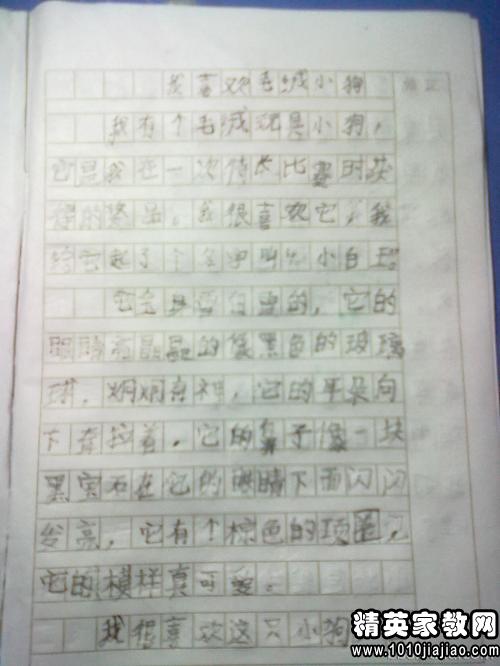 我喜欢毛绒小狗
我有个毛绒玩具小狗，
它是我在一次特长比赛时获
得的奖品，我很喜欢它，我
给它起了个名字叫
小白球
它全身雪白雪白的，它的
眼睛亮晶晶的像黑色的玻璃
球，炯炯有神，它的耳朵向
下耷拉着，它的鼻子像一块
黑宝石在它的眼睛下面闪闪
发亮，它有个棕色的项圈，
它的模样真可爱。
我很喜欢这只小狗
精英家教网
www.1010jiajiao.com